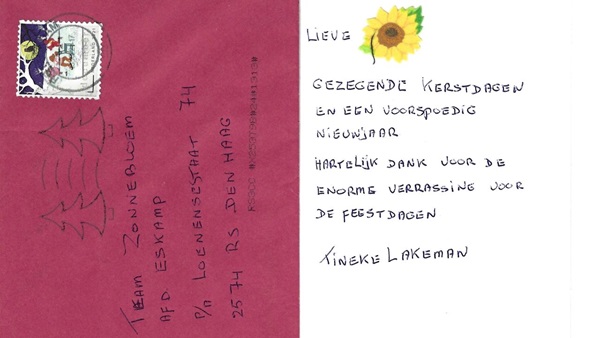 TEAM ZONNEBLOEM
AFD ESKAMP
P/A LOENENSESTAAT 74
2574 RS DEN HAAG
LIEVE
GEZEGENDE KERSTDAGEN
EN EEN VOORSPOEDIG
NIEUWJAAR
HARTELIJK DANK VOOR DE
ENORME VERRASSING VOOR
DE FEESTDAGEN
TINEKE LAKEMAN